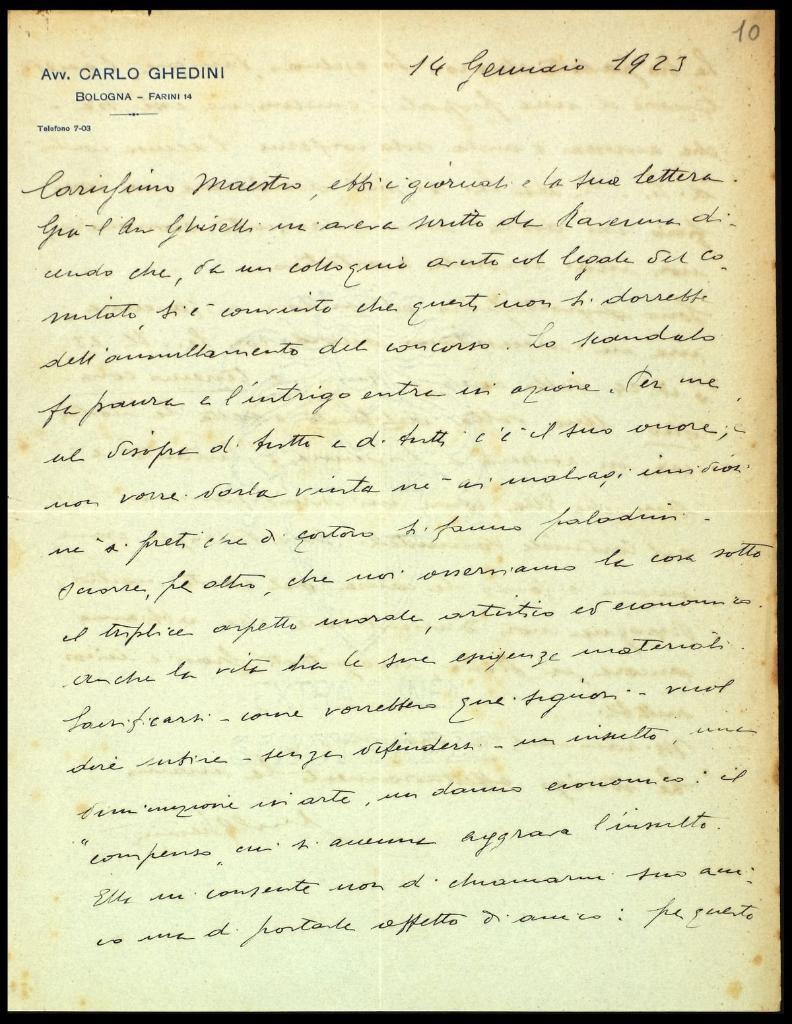 10
14 Gennaio 1923
Avv. CARLO GHEDINI
BOLOGNA - FARINI 14
Telefono 7-03
Carissimo Maestro, ebbi i giornali e la sua lettera.
Già l'Avv Ghiselli mi aveva scritto da Ravenna di-
cendo che, da un colloquio avuto col legale del co-
mitato, si è convinto che questi non si dorrebbe
dell'annullamento del concorso. Lo scandalo
fa paura e l'intrigo entra in azione. Per me,
al disopra di tutto e di tutti c'è il suo onore;
non vorrei darla vinta nè ai malvagi invidiosi
nè ai preti che di costoro si fanno paladini.
Occorre, per altro, che noi osserviamo la cosa sotto
il triplice aspetto morale, artistico ed economico.
Anche la vita ha le sue esigenze materiali.
Sacrificarsi - come vorrebbero quei signori - vuol
dire subire - senza difendersi - un insulto, una
diminuzione in arte, un danno economico: il
"compenso" cui si accenna aggrava l'insulto.
Ella mi consente non di chiamarmi suo ami-
co ma di portarle affetto di amico: per questo